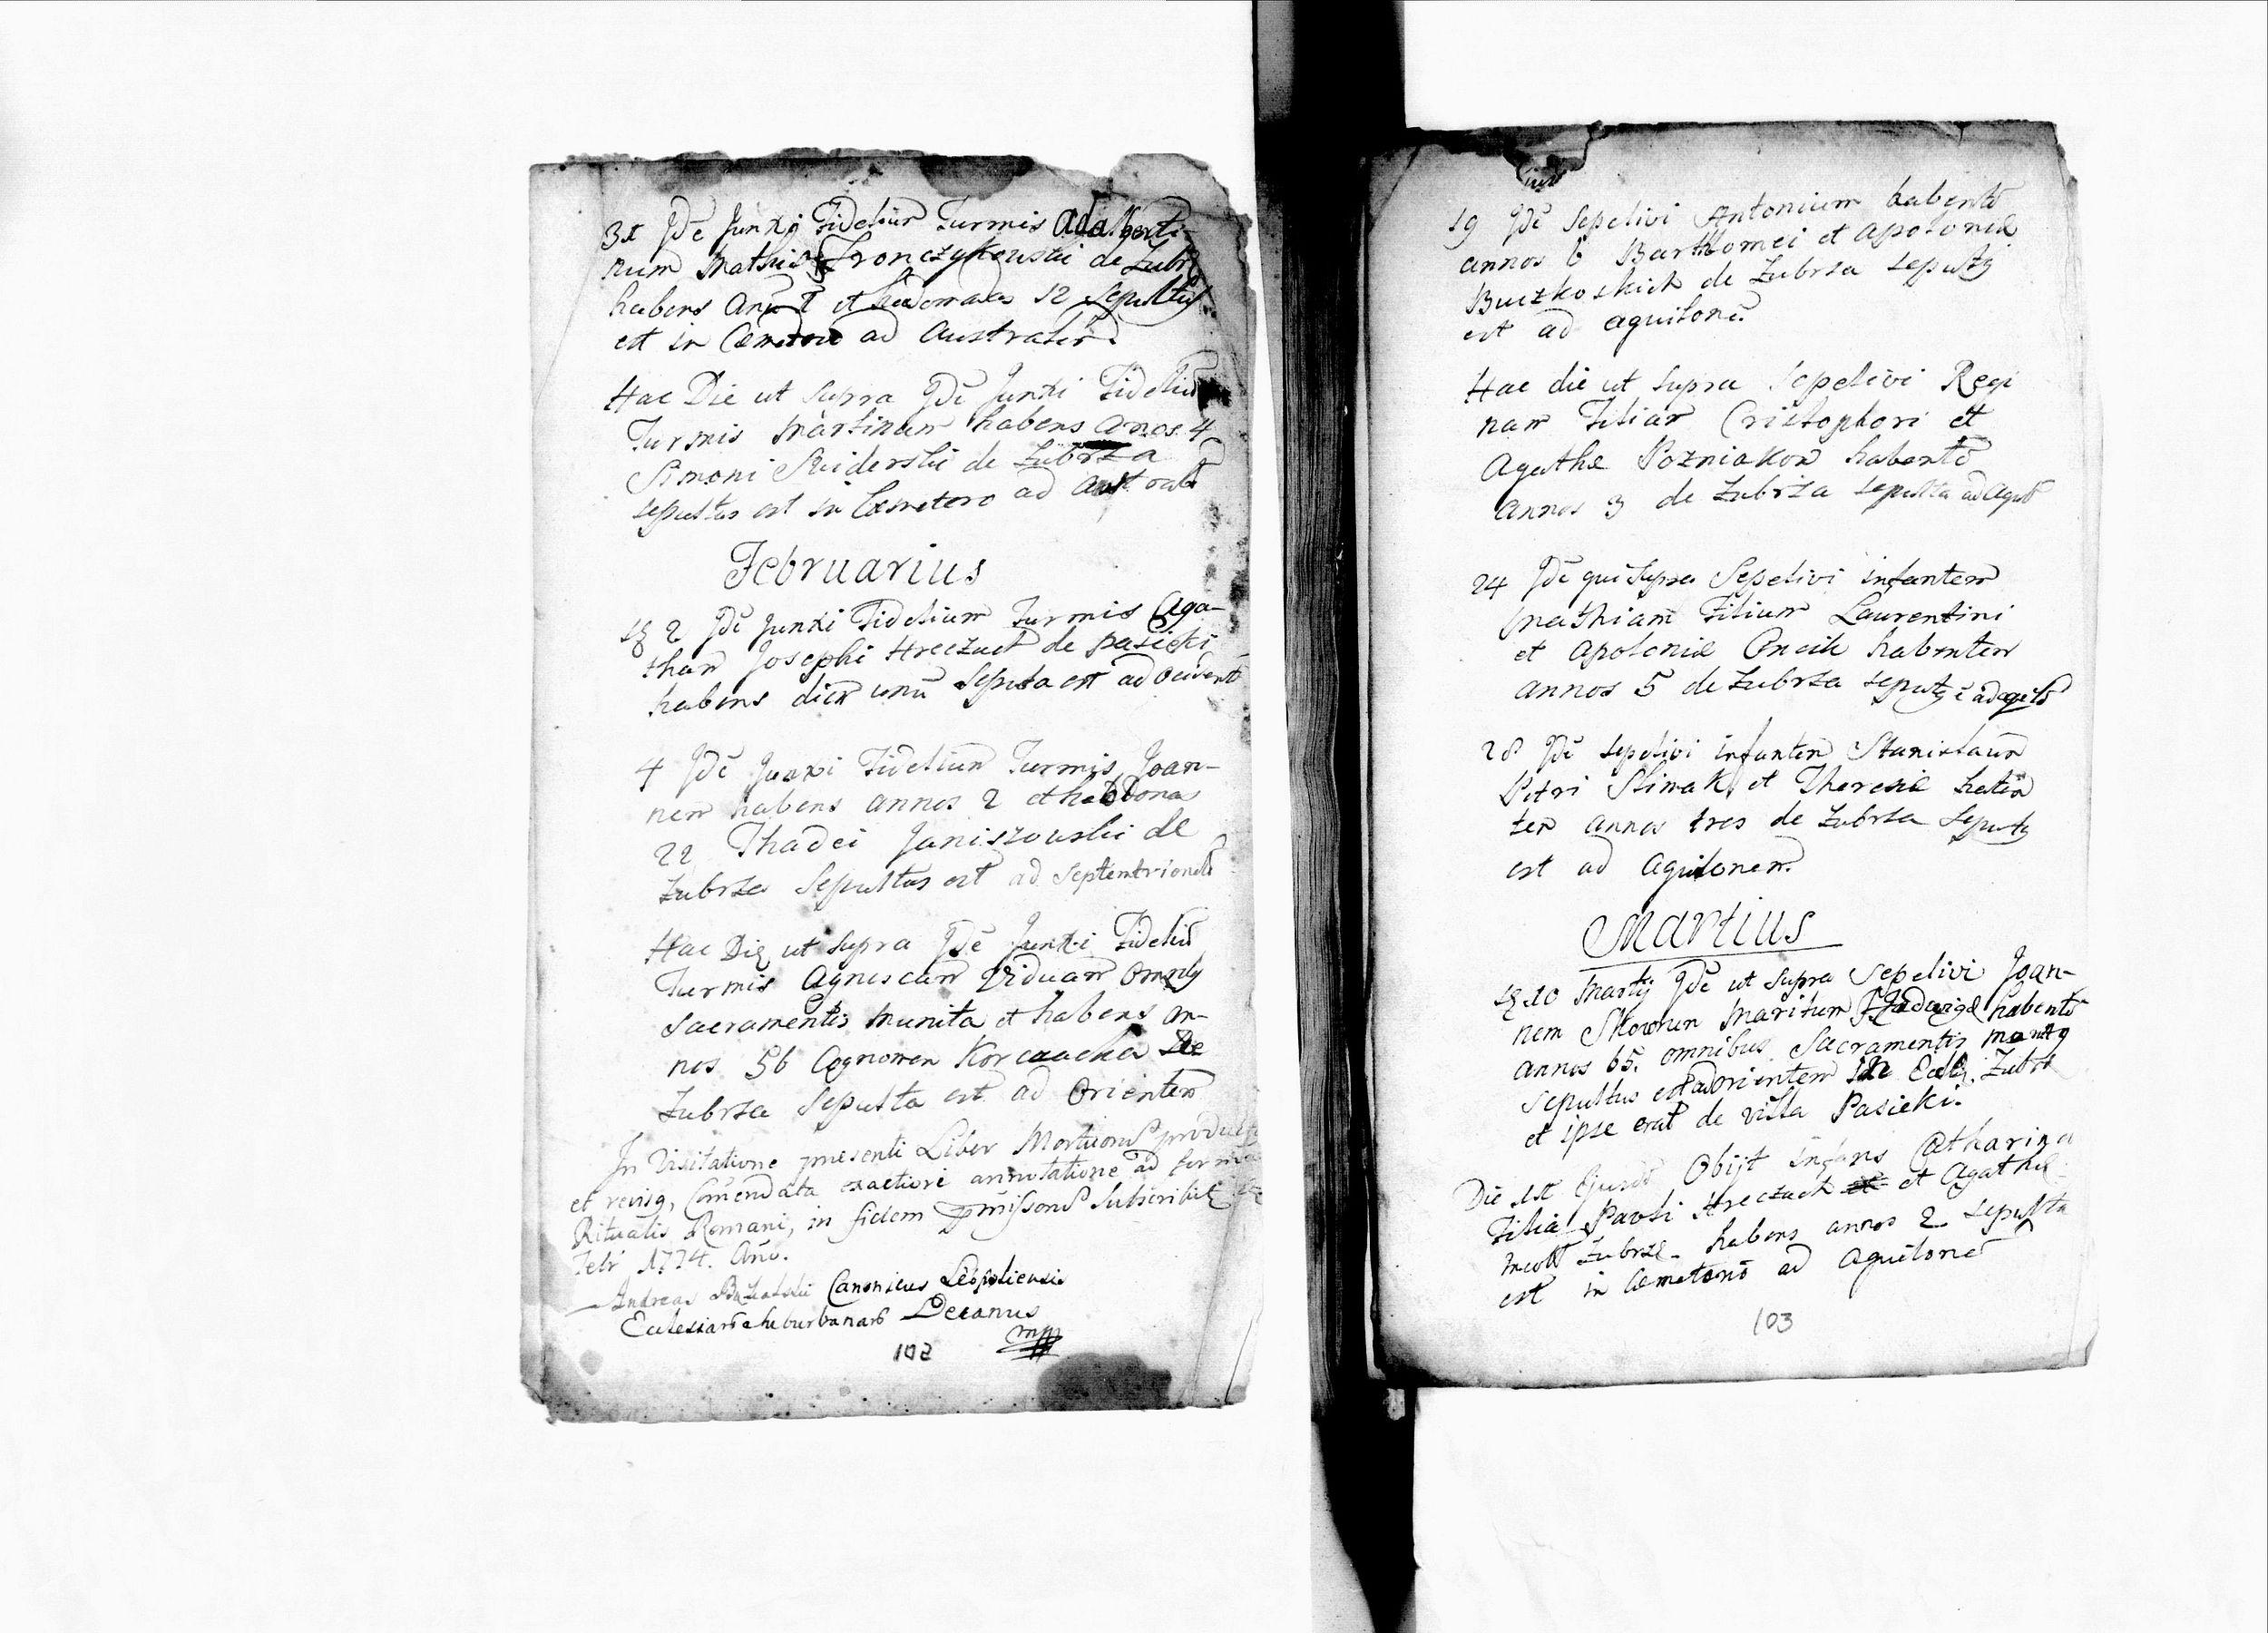 31 Jdē Junxi Fidelium Turmis Adalberti-
num Mathiæ Fronczykowski de Zubrz
habens Anū 1 et hebdomadas 12 Sepultus
est in Cæmeterio ad Australēm
Hac Die ut Supra Jdē Junxi Fideliū
Turmis Martinum habens Anos 4
Simoni Swiderski de Zubrza
sepultus est in Cæmetero ad Austral
Februarius
2 Jdē Junxi Fidelium Turmis Aga-
tham Josephi Hreczuch de Pasieki
habens diem unū Sepulta est ad Occident
4 Jdē Junxi Fidelium Turmis Joan-
nem habens annos 2 et hebdomas
22 Thadei Janiszowski de
Zubrza Sepultus est ad Septentrionalē
Hac Die ut Supra Jdē Junxi Fideliū
Turmis Agnescam Viduam Omnibq
Sacramentis Munita et habens An-
nos 56 Cognomen Korczacka de
Zubrza Sepulta est ad Orientem
In Visitatione præsenti Liber Mortuorū
et revisq, Comendata exactiori annotatione ad
Ritualis Romani, in fidem præmissorū Subscribit
Febr 1774. Ano.
Andreas Canonicus Leopoliensis
Ecclesiarū Suburbanarū Decanus
mp
102
19 Jdē Sepelivi Antonium habentē
annos 6 Barthlomei et Apoloniæ
Buczkoskich de Zubrza sepultq
est ad aquilonē.
Hac die ut Supra Sepelivi Regi
nam Filiam Cristophori et
Agathæ Pozniakow habentē
annos 3 de Zubrza sepulta ad Aquil
24 Jdē qui Supra Sepelivi infantem
Mathiam Filium Laurentini
et Apoloniæ Oncik habentem
annos 5 de Zubrza sepultq ē ad aqilō
28 Jdē sepelivi infantem Stanislaum
Petri Slimak et Theresiæ haben
tem annos tres de Zubrza Sepultq
est ad Aquilonem
Martius
10 Martij Jdē ut Supra Sepelivi Joan-
nem Skowron Maritum Hadwigæ habentē
annos 65. omnibus Sacramentis munitq
Sepultus est ad orientem Eccliæ Zubrz
et ipse erat de villa Pasieki.
Die 1st Ejusdē Obijt infans Catharina
Filia Pavli Hreczuch et Agathæ
Incoll Zubræ habens annos 2 sepulta
est in Cæmeterio ad Aquilonē
103